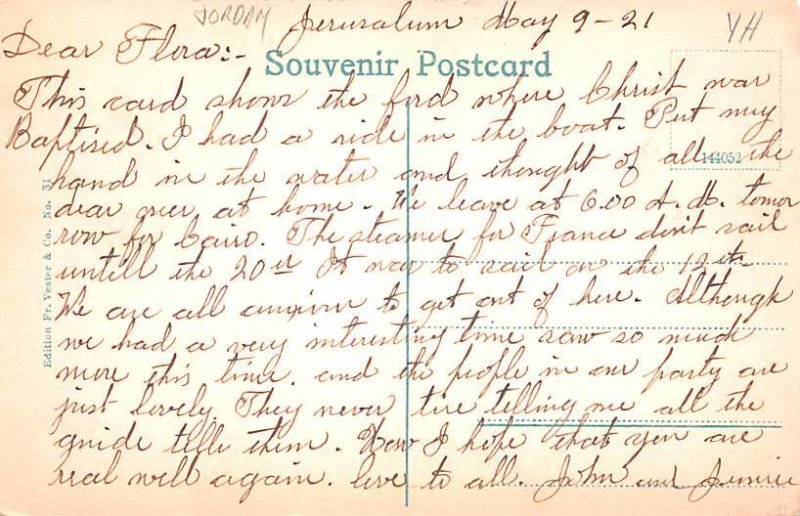 JORDAN
YH
Jerusalum May 9-21
Dear Flora:-
Souvenir Postcard
This card shows the ford where Christ was
Baptised. I had a ride in the boat. Put my
144052
hand in the water and thought of all the
dear ones at home. We leave at 6.00 A.M. tomor
row for Cairo. The steamer for France don't sail
untill the 20th It was to sail on the 12th
We are all anxious to get out of here. Although
we had a very interesting time saw so much
more this time. and the people in our party are
just lovely. They never tire telling me all the
guide tells them. Now I hope that you are
real well again. love to all. John and Jennie
Edition Fr. Vester & Co. No. 31